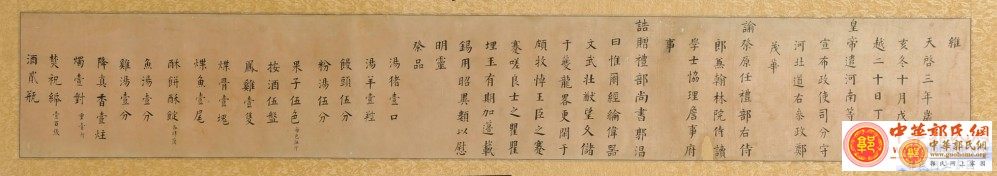 維
天啓三年歲
亥冬十月戊
越二十日丁
皇帝遣河南等
宣布政使司分守
河北道右參政鄭
茂華
諭祭原任禮部右侍
郎兼翰林院侍讀
學士協理詹事府
事
誥贈禮部尚書郭淐
曰惟爾經綸偉器
文武壯猷望久儲
于夔龍畧更閑于
頗牧悼王臣之蹇
蹇嗟良士之瞿瞿
埋玉有期加籩載
錫用昭異類以慰
明靈
祭品
湯豬壹口
湯羊壹羫
饅頭伍分
粉湯伍分
果子伍色
按酒伍盤
鳳雞壹隻
煠骨壹塊
煠魚壹尾
酥餅酥餤
魚湯壹分
雞湯壹分
降真香壹炷
燭壹對
焚祝紙壹百張
酒貳瓶
郭
中华郭氏网
中華郭氏網
www.guohome.org
郭氏网上家园